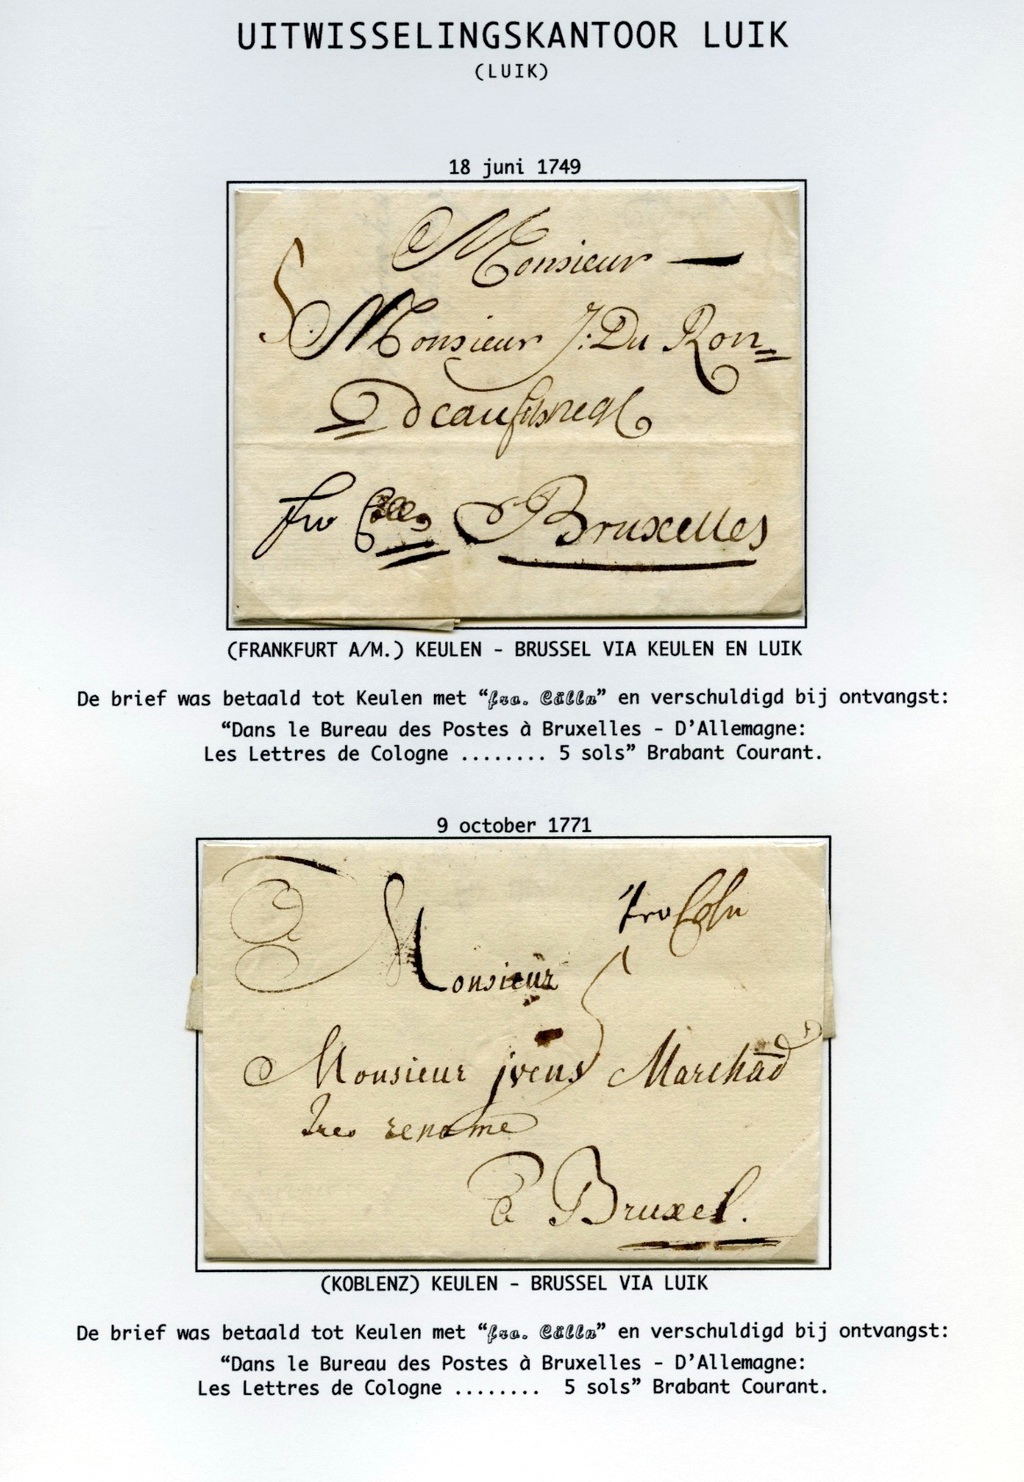 UITWISSELINGSKANTOOR LUIK
(LUIK)
18 juni 1749
Monsieur
5
Monsieur J: Du Ron=
Deau
fro Cölln
Bruxelles
(FRANKFURT A/M.) KEULEN - BRUSSEL VIA KEULEN EN LUIK
De brief was betaald tot Keulen met “fro. Cölln” en verschuldigd bij ontvangst:
“Dans le Bureau des Postes à Bruxelles - D’Allemagne:
Les Lettres de Cologne ........ 5 sols” Brabant Courant.
9 october 1771
A
fro Coln
Monsieur
5
Monsieur jvens Marchād
Tres renome
à Bruxel.
(KOBLENZ) KEULEN - BRUSSEL VIA LUIK
De brief was betaald tot Keulen met “fro. Cölln” en verschuldigd bij ontvangst:
“Dans le Bureau des Postes à Bruxelles - D’Allemagne:
Les Lettres de Cologne ........ 5 sols” Brabant Courant.